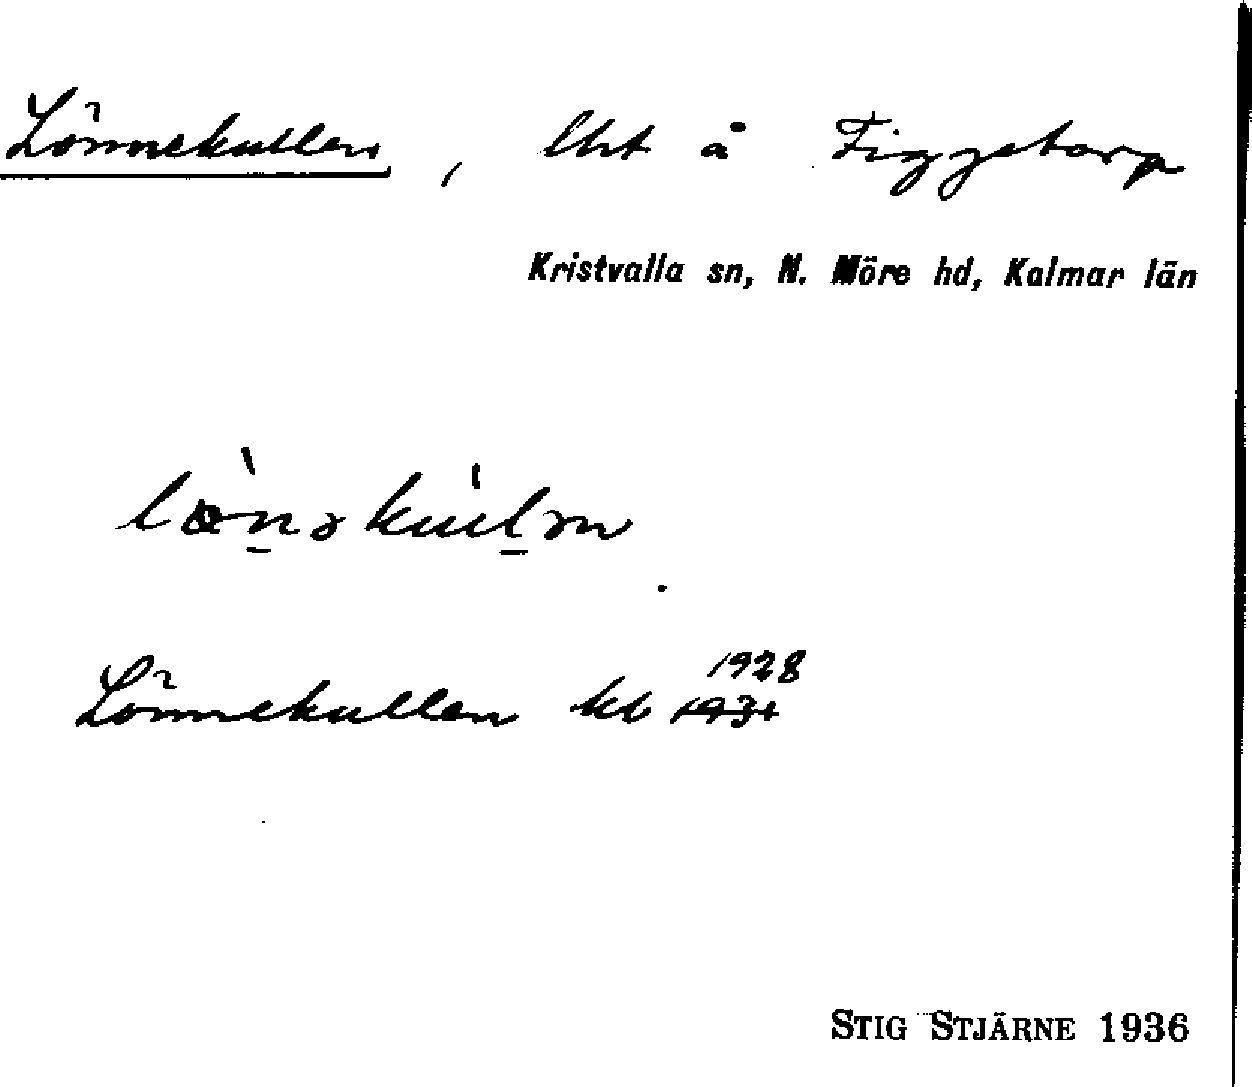 Lönnekullen, lht å Figgetorp
Kristvalla sn, N. Möre hd, Kalmar län
Lönnekullen kb 1928
1931
STIG STJÄRNE 1936